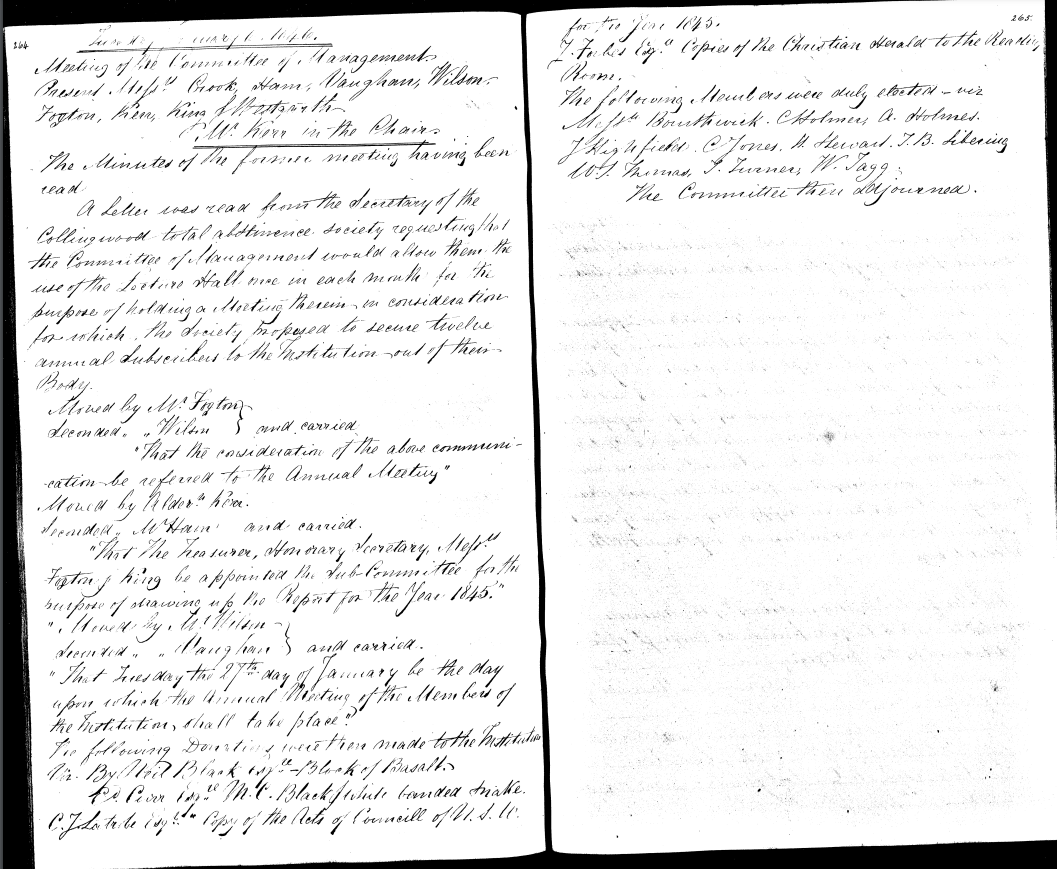 264
Meeting of the Committee of Management
Present Messrs Crook, Ham, Vaughan, Wilson
Foxton, Kerr, King & Westgarth
Mr Kerr in the Chair
The Minutes of the former meeting having been
read
A Letter was read from the Secretary of the
Collingwood total abstinence society requesting that
the Committee of Management would allow them the
use of the Lecture Hall once in each month for the
purpose of holding a Meeting therein in consideration
for which the Society proposed to secure twelve
annual Subscribers to the Institution out of their
Body.
Moved by Mr Foxton
Seconded " " Wilson } and carried
"That the consideration of the above communi-
cation be referred to the Annual Meeting"
Moved by Alderm Kerr.
Seconded " Mr Ham and carried.
"That the Treasurer, Honorary Secretary, Messrs
Foxton & King be appointed the Sub-Committee for the
purpose of drawing up the Report for the Year 1845."
" Moved by Mr Wilson
Seconded " " Vaughan } and carried.
"That Tuesday the 27th day of January be the day
upon which the Annual Meeting of the Members of
the Institution shall take place"
The following Donations were then made to the Institution
Viz. By Neil Black Esqre - Block of Basalt.
Ed. Curr Esqre M.C. Black & white banded snake.
C.J. Latrobe Esqr " Copy of the Acts of Councill of N.S.W.
265.
for the Year 1845.
Forbes Esqr Copies of the Christian Herald to the Reading
Room.
The following Members were duly elected - viz
Messrs Bourthwick. C Holmes, A. Holmes.
J Highfield. C Jones. H Stewart. T.B.
W.J. Thomas, J. Turner, W. Tagg.
The Committee then Adjourned.